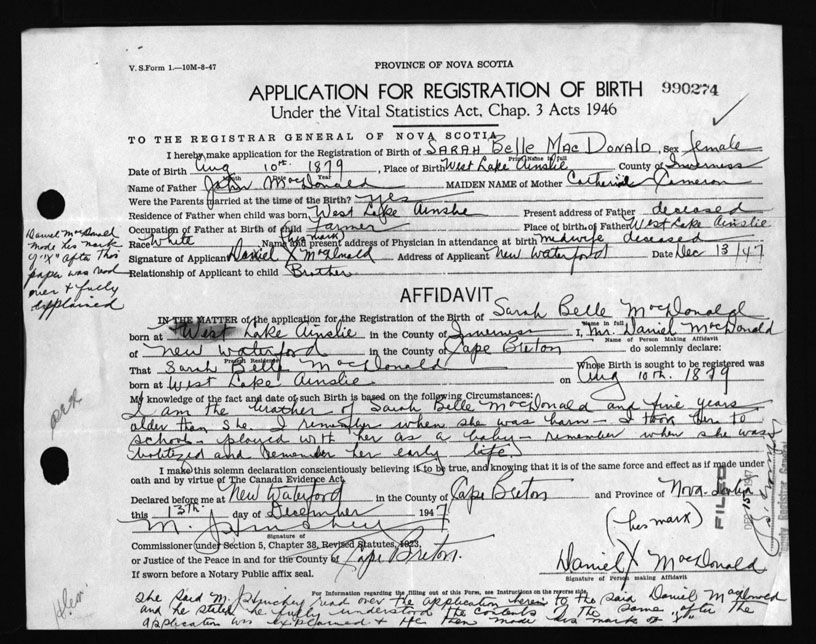 V. S. Form 1.—10M-8-47
PROVINCE OF NOVA SCOTIA
APPLICATION FOR REGISTRATION OF BIRTH 990274
Under the Vital Statistics Act, Chap. 3 Acts 1946
TO THE REGISTRAR GENERAL OF NOVA SCOTIA
I hereby make application for the Registration of Birth of SARAH Belle MacDONALD, sex female
Print Name in full
Date of Birth Aug 10th 1879, Place of Birth West Lake Ainslie County of Inverness
Month Year
Name of Father John MacDonald MAIDEN NAME of Mother Catherine Cameron
Were the Parents married at the time of Birth? yes
Residence of Father when child was born West Lake Ainslie Present address of Father deceased
Occupation of Father at Birth of child Farmer Place of birth of Father West Lake Ainslie
Race White Name and present address of Physician in attendance at birth midwife deceased
(his mark)
Signature of Applicant Daniel X McDonald Address of Applicant New Waterford Date Dec 13/47
Relationship of Applicant to child Brother
Daniel McDonald
made his mark
"X" after this
paper was read
over & fully
explained
AFFIDAVIT
IN THE MATTER of the application for the Registration of Birth of Sarah Belle MacDonald
Name in full
born at West Lake Ainslie in the County of Inverness I, Mr. Daniel MacDonald
Name of Person Making Affidavit
of New Waterford in the County of Cape Breton do solemnly declare:
Present Residence
That Sarah Belle MacDonald Whose Birth is sought to be registered was
born at West Lake Ainslie on Aug 10th. 1879
My knowledge of the fact and date of such Birth is based on the following Circumstances:
I am the brother of Sarah Belle MacDonald and five years
older than she. I remember when she was born - I took her to
school - played with her as a baby - remember when she was
batized and remember her early life.
I make this solemn declaration conscientiously believing it to be true, and knowing that it is of the same force and effect as if made under
oath and by virtue of The Canada Evidence Act.
Declared before me at New Waterford in the County of Cape Breton and Province of Nova Scotia
this 13th. day of December 1947
M.
Signature of
Commissioner (under Section 5, Chapter 38, Revised Statutes, 1923,
or Justice of the Peace in and for the County of Cape Breton.
If sworn before a Notary Public affix seal.
(his mark)
Daniel X MacDonald
Signature of Person making Affidavit
FILED
DEC 15 1947
Deputy Registrar General
For Information regarding the filling out of this Form, see Instructions on the reverse side.
She said M. read over the application herein to the said Daniel MacDonald
and he stated he fully understood the contents of the same after the
application was explained & he then made his mark of "X"